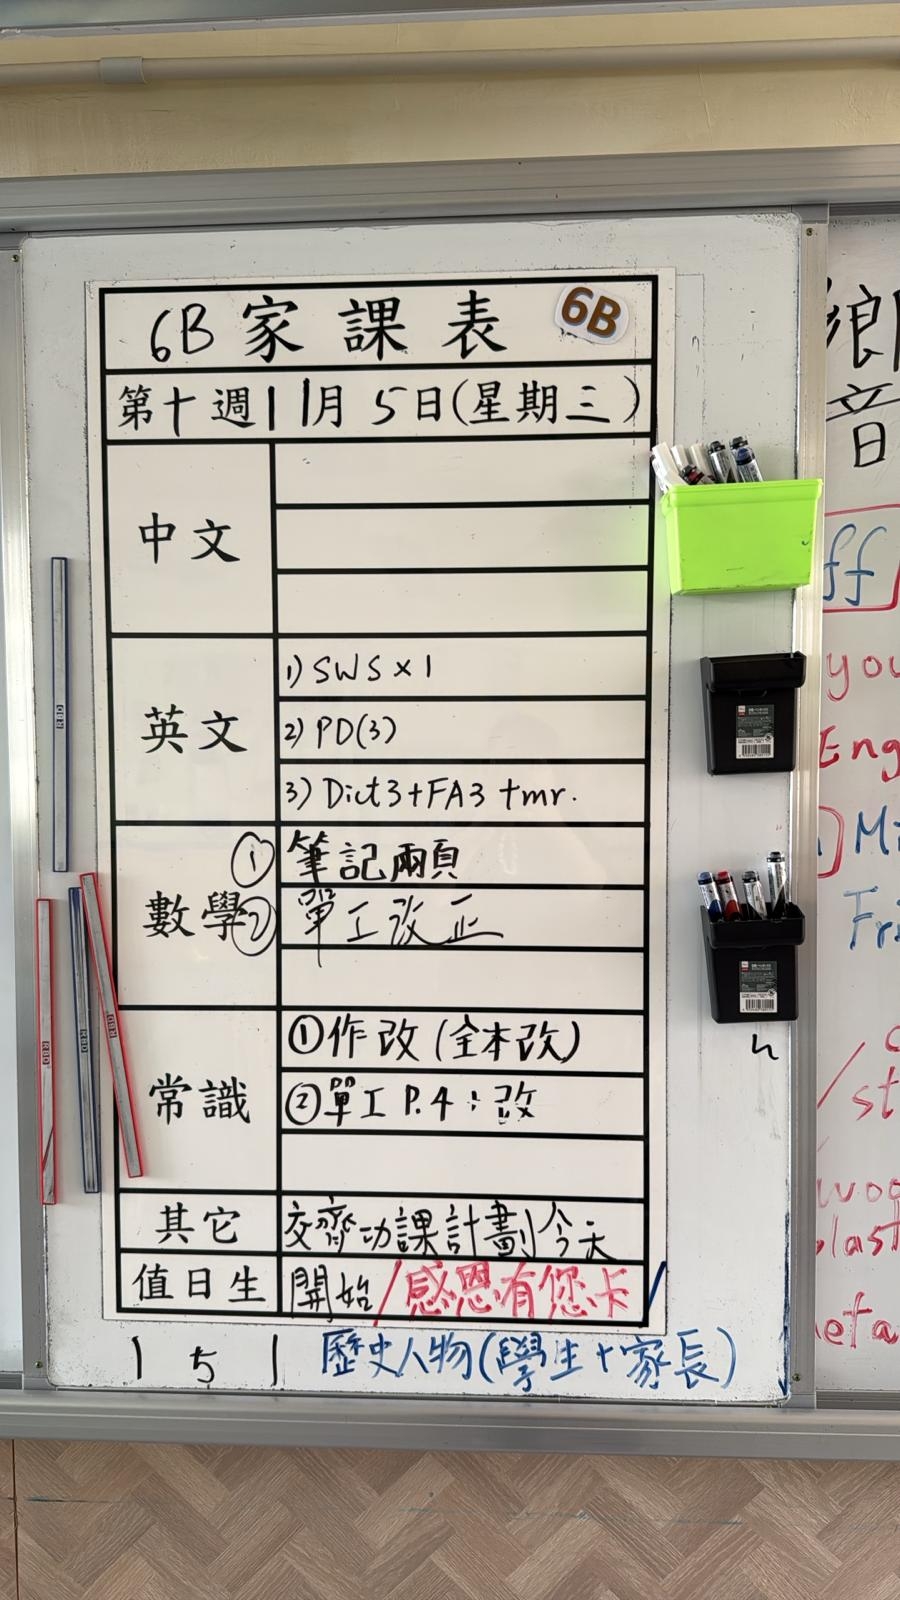 6B 家課表 6B
第十週 11月5日(星期三)
中文
英文
1) SWS x 1
2) PD(3)
3) Dict3+FA3 tmr.
數學
① 筆記兩頁
② 單工改正
常識
①作改(全本改)
②單工 P.4:改
其它
交齊功課計劃今天
值日生
開始/感恩有您卡/
1 5 1
歷史人物(學生+家長)
KBO
KBO
KBO
KBO
n
鄉
音
ff
you
Eng
Mi
Fri
st
woo
last
eta